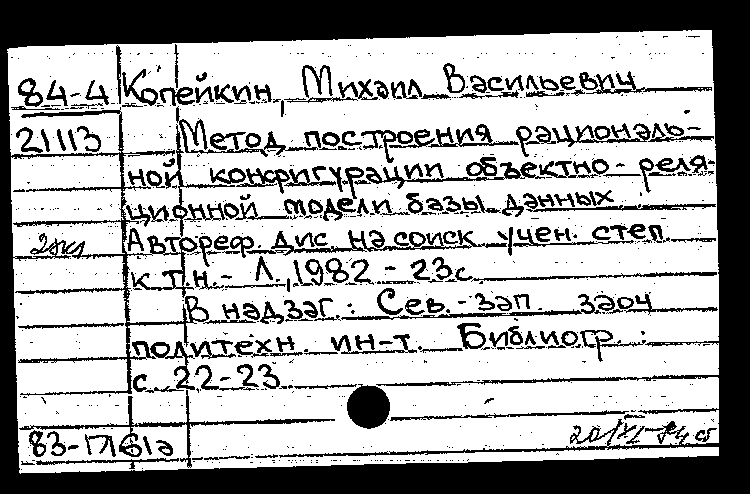 84-4 Копейкин, Михаил Васильевич
21113 Метод построения рациональ-
ной конфигурации объектно-реля-
ционной модели базы данных :
2экз Автореф. дис. на соиск. учен. степ.
к.т.н. - Л., 1982 - 23с.
В надзаг.: Сев.-зап. заоч.
политехн. ин-т. Библиогр.:
с. 22-23
83-17161а